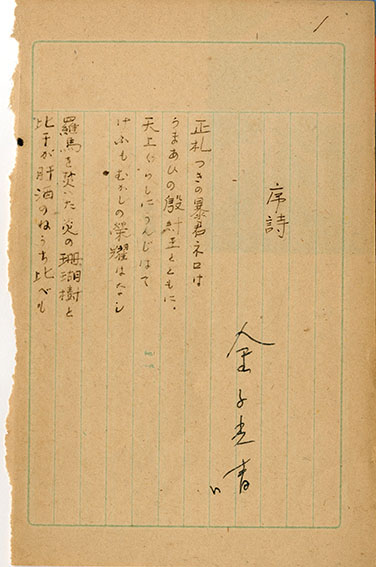 1
序詩
金子光晴
正札つきの暴君ネロは
うまあひの殷紂王とともに、
天上ぐらしにうんじはて
けふもむかしの榮耀はなし
羅馬を焚いた炎の珊瑚樹と
比干が肝酒のねうち比べも